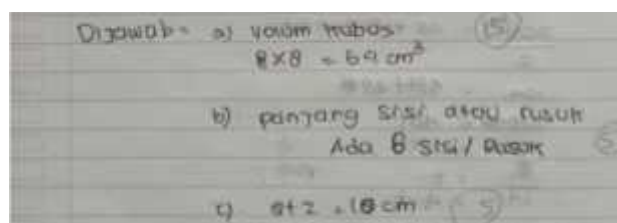 Dijawab = a) Volum kubus (5)
8×8 = 64 cm³
b) panjang sisi atau rusuk
Ada 6 sisi / Rusuk
c) 8+2 = 16 cm (5)